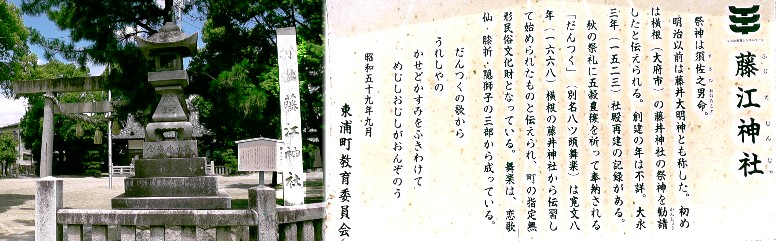 村社 藤江神社
藤江神社
ふじえじんじゃ
祭神は須佐之男命。
すさのおのみこと
明治以前は藤井大明神とも称した。初め
は横根（大府市）の藤井神社の祭神を勧請
かんじょう
したと伝えられる。創建の年は不詳。大永
三年（一五二三）社殿再建の記録がある。
秋の祭礼に五穀豊穣を祈って奉納される
「だんつく」（別名八ツ頭舞楽）は寛文八
年（一六六八）横根の藤井神社から伝習し
て始められたものと伝えられ、町の指定無
形民俗文化財となっている。舞楽は、恋歌
仙・膝折・鬮獅子の三部から成っている。
だんつくの歌から
うれしやの
かせどかすみをふきわけて
めじしおじしがおんぞのう
昭和五十九年九月
東浦町教育委員会